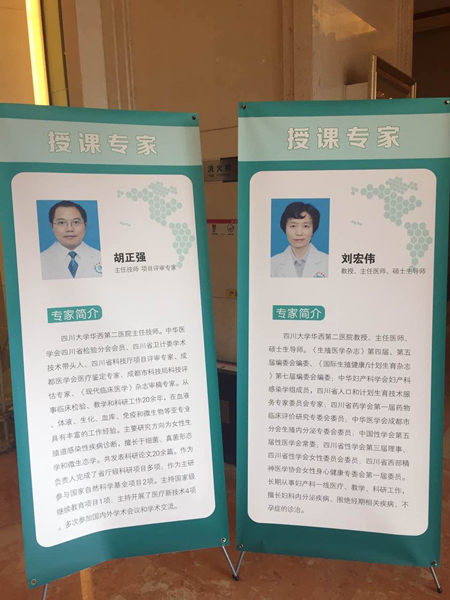 授课专家
胡正强
主任技师 项目评审专家
专家简介
四川大学华西第二医院主任技师。中华医
学会四川省检验分会会员、四川省卫计委学术
技术带头人、四川省科技厅项目评审专家、成
都医学会医疗鉴定专家、成都市科技局科技评
估专家、《现代临床医学》杂志审稿专家。从
事临床检验、教学和科研工作20余年，在血液
、体液、生化、血库、免疫和微生物等亚专业
具有丰富的工作经验。主要研究方向为女性生
殖道感染性疾病诊断，擅长于细菌、真菌形态
学和微生态学。共发表科研论文20余篇。作为
负责人完成了省厅级科研项目多项，作为主研
参与国家自然科学基金项目2项。主持国家级
继续教育项目1项；主持开展了医疗新技术4项
，多次参加国内外学术会议和学术交流。
授课专家
刘宏伟
教授、主任医师、硕士生导师
专家简介
四川大学华西第二医院教授、主任医师、
硕士生导师。《生殖医学杂志》第四届、第五
届编委会编委、《国际生殖健康/计划生育杂志
》第七届编委会编委；中华妇产科学会妇产科
感染学组成员，四川省人口和计划生育技术服
务专家委员会专家；四川省药学会第一届药物
临床评价研究专委会委员；中华医学会成都市
分会生殖内分泌专委会委员；中国性学会第五
届性医学会常委；四川省性学会第三届理事，
四川省性学会女性委员会委员；四川省西部精
神医学协会女性身心健康专委会第一届委员。
长期从事妇产科一线医疗、教学、科研工作，
擅长妇科内分泌疾病、围绝经期相关疾病、不
孕症的诊治。